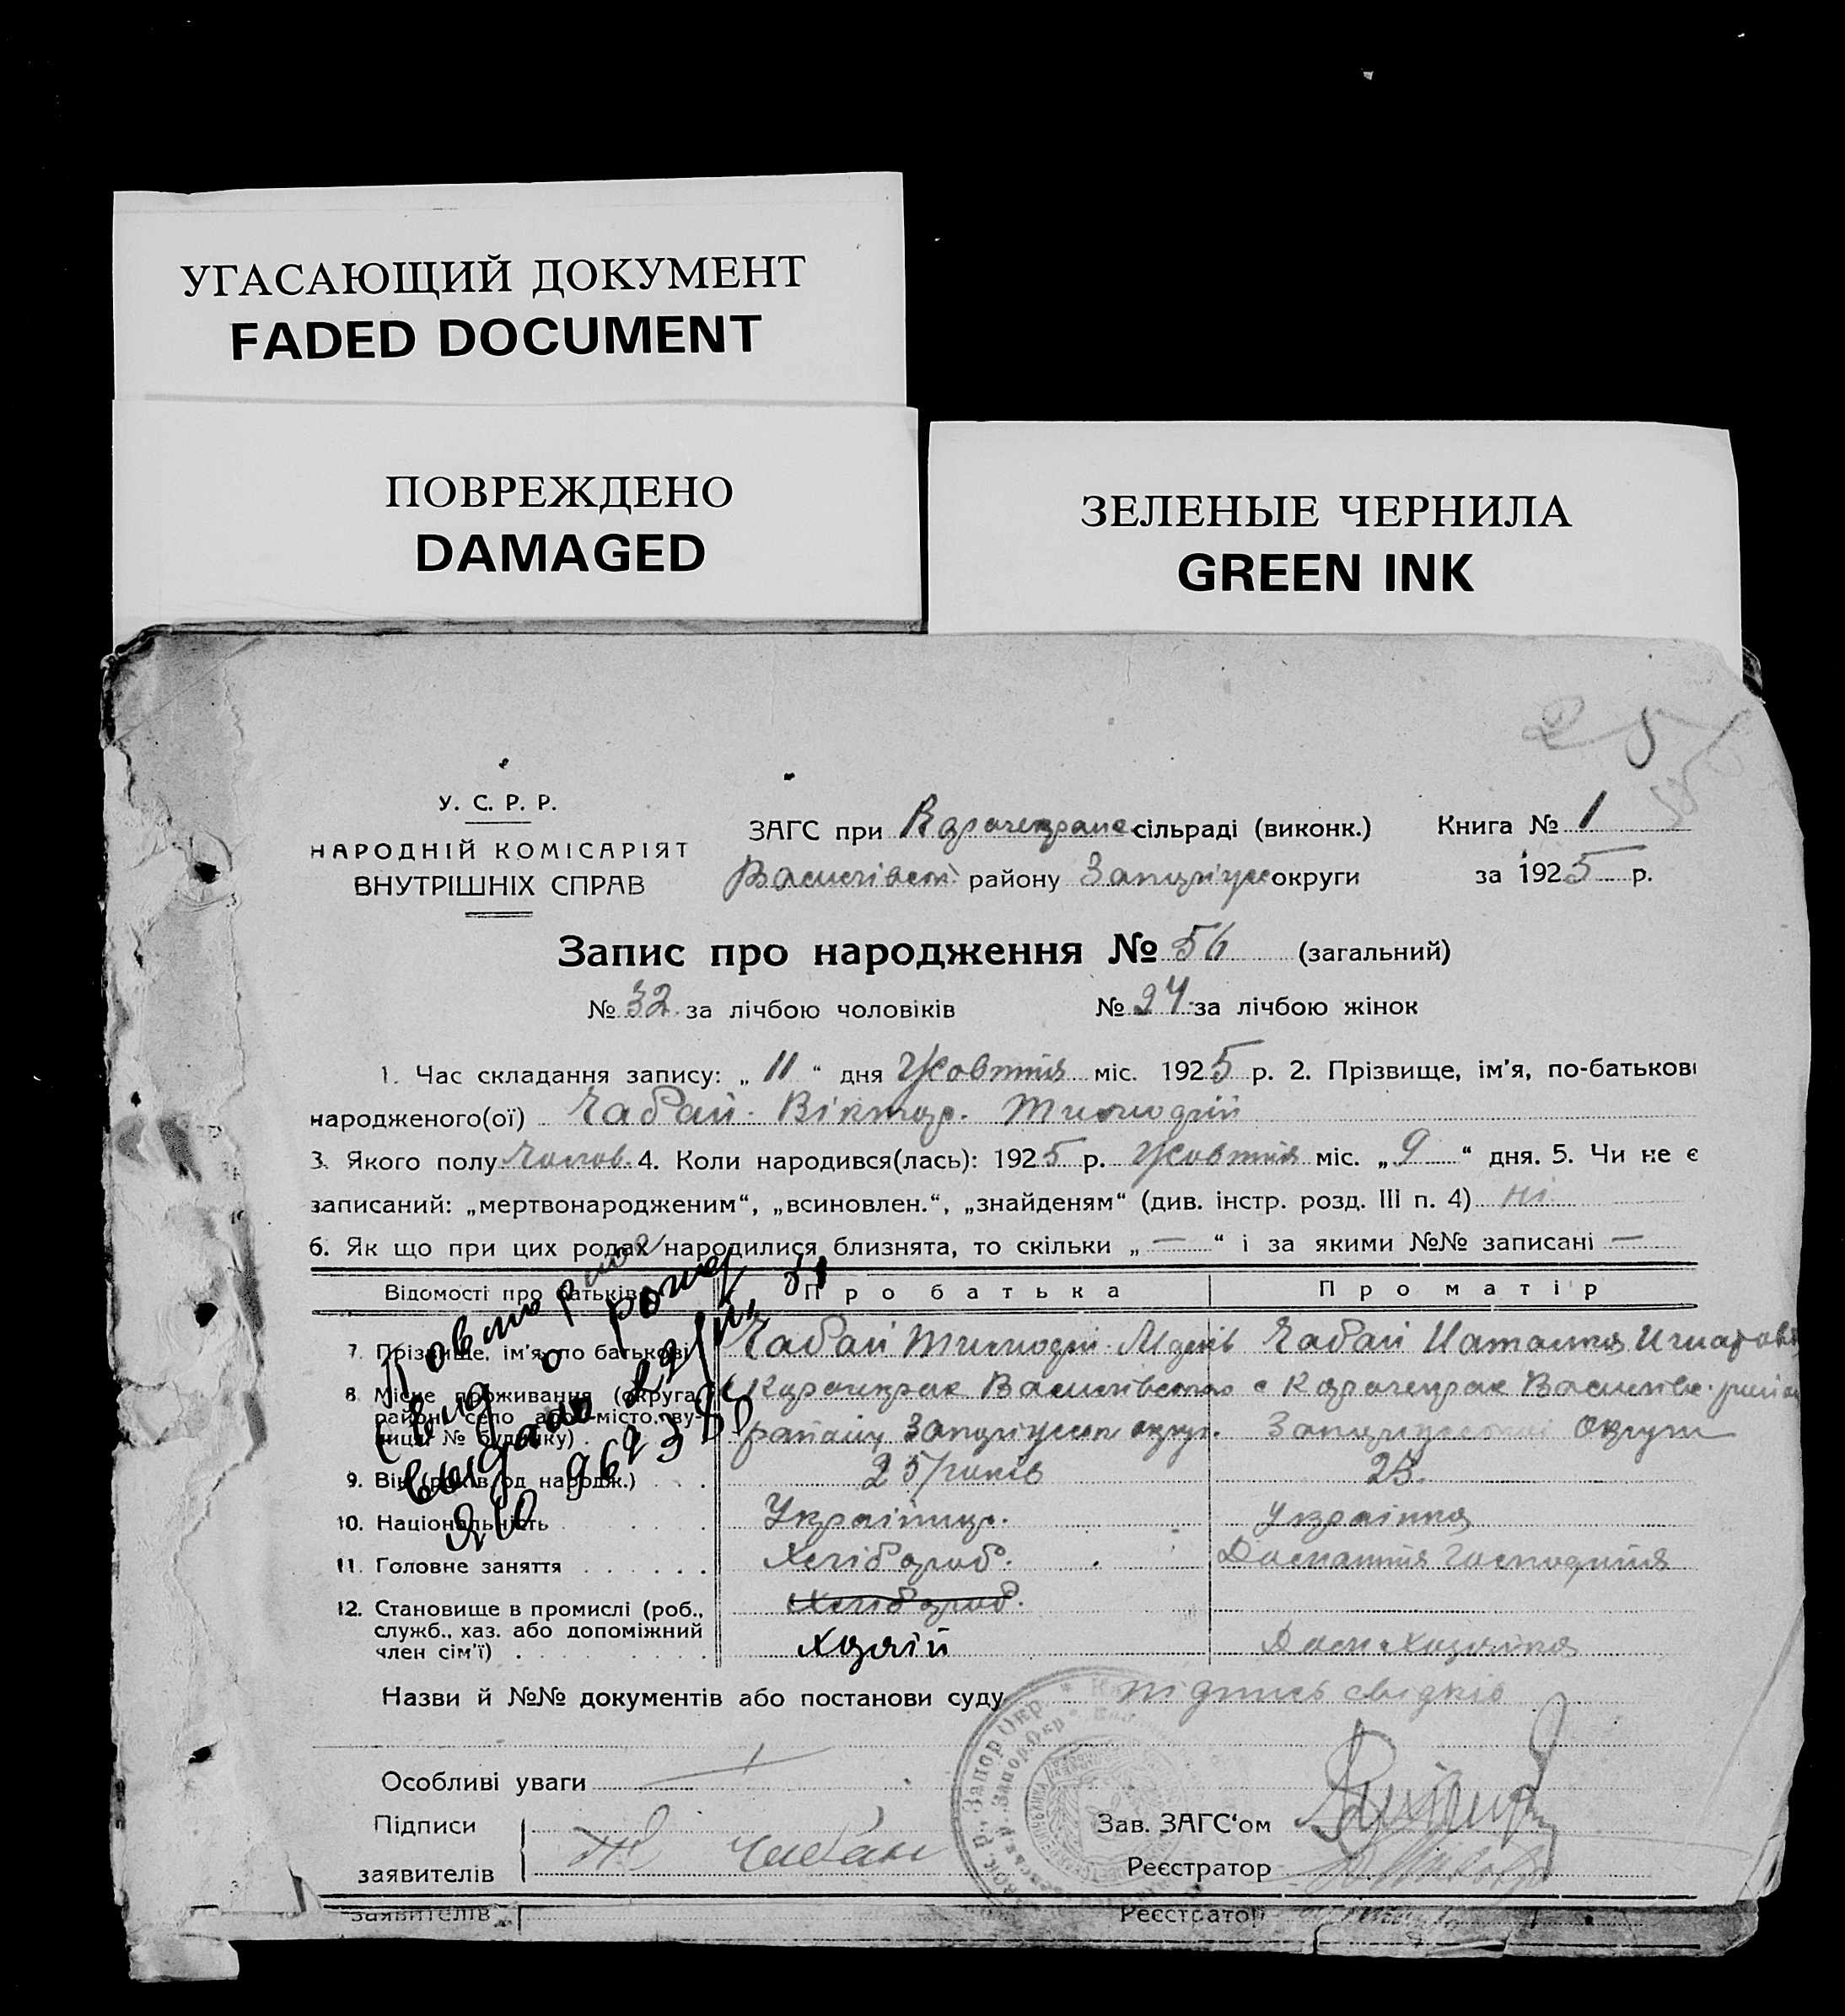 УГАСАЮЩИЙ ДОКУМЕНТ
FADED DOCUMENT
ПОВРЕЖДЕНО
DAMAGED
ЗЕЛЕНЫЕ ЧЕРНИЛА
GREEN INK
25
У. С. Р. Р.
НАРОДНІЙ КОМІСАРІЯТ
ВНУТРІШНІХ СПРАВ
ЗАГС при сільраді (виконк.)
району округи
Книга № 1
за 1925 р.
Запис про народження № 56 (загальний)
№ 32 за лічбою чоловіків № 24 за лічбою жінок
1. Час складання запису: „ 11 “ дня Жовтня міс. 1925 р. 2. Прізвище, ім'я, по-батькові
народженого(ої) Чабан Віктор Тимофій
3. Якого полу Чолов. 4. Коли народився(лась): 1925 р. Жовтня міс. „ 9 “ дня. 5. Чи не є
записаний: „мертвонародженим“, „всиновлен.“, „знайденям“ (див. інстр. розд. III п. 4) ні
6. Як що при цих родах народилися близнята, то скільки „ — “ і за якими №№ записані —
Відомості про батьків Про батька Про матір
7. Прізвище, ім'я, по батькові Чабан Тимофій Чабан Наталия
8. Місце проживання (округа, с Карачекрак с Карачекрак
район, село або місто, ву-
лиця № будинку) району округ. Округи
9. Вік (років од народж.) 25 років 25.
10. Національність Українец. Українка
11. Головне заняття Хлібороб. Домашня господиня
12. Становище в промислі (роб., Хлібороб.
служб., хаз. або допоміжний
член сім'ї) Хазяїн Дом. Хазяйка
Назви й №№ документів або постанови суду підпись свідків
Особливі уваги
Підписи
заявителів Чабан
Зав. ЗАГС‘ом
Реєстратор
заявителів
Реєстратор